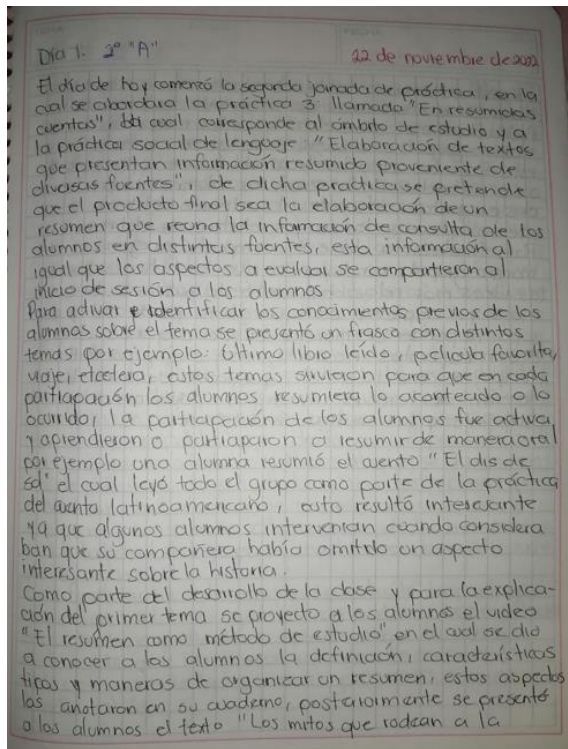 Día 1. 2° "A"
22 de noviembre de 2022
El día de hoy comenzó la segunda jornada de práctica, en la
cual se abordara la práctica 3 llamada "En resumidas
cuentas", la cual corresponde al ámbito de estudio y a
la práctica social de lenguaje "Elaboración de textos
que presentan información resumida proveniente de
diversas fuentes", de dicha practica se pretende
que el producto final sea la elaboración de un
resumen que reuna la información de consulta de los
alumnos en distintas fuentes, esta información al
igual que los aspectos a evaluar se compartieron al
inicio de sesión a los alumnos
Para activar e identificar los conocimientos previos de los
alumnos sobre el tema se presentó un frasco con distintos
temas por ejemplo: último libro leído, película favorita,
viaje, etcetera, estos temas sirvieron para que en cada
participación los alumnos resumiera lo acontecido o lo
ocurrido, la participación de los alumnos fue activa
y aprendieron o participaron a resumir de manera oral
por ejemplo una alumna resumió el cuento "El dis de
sol" el cual leyó todo el grupo como parte de la práctica
del cuento latinoamericano, esto resultó interesante
ya que algunos alumnos intervenian cuando considera
ban que su compañera había omitido un aspecto
interesante sobre la historia.
Como parte del desarrollo de la clase y para la explica-
ción del primer tema se proyecto a los alumnos el video
"El resumen como método de estudio" en el cual se dio
a conocer a los alumnos la definición, características
tipos y maneras de organizar un resumen, estos aspectos
los anotaron en su cuaderno, posteriormente se presentó
a los alumnos el texto "Los mitos que rodean a la